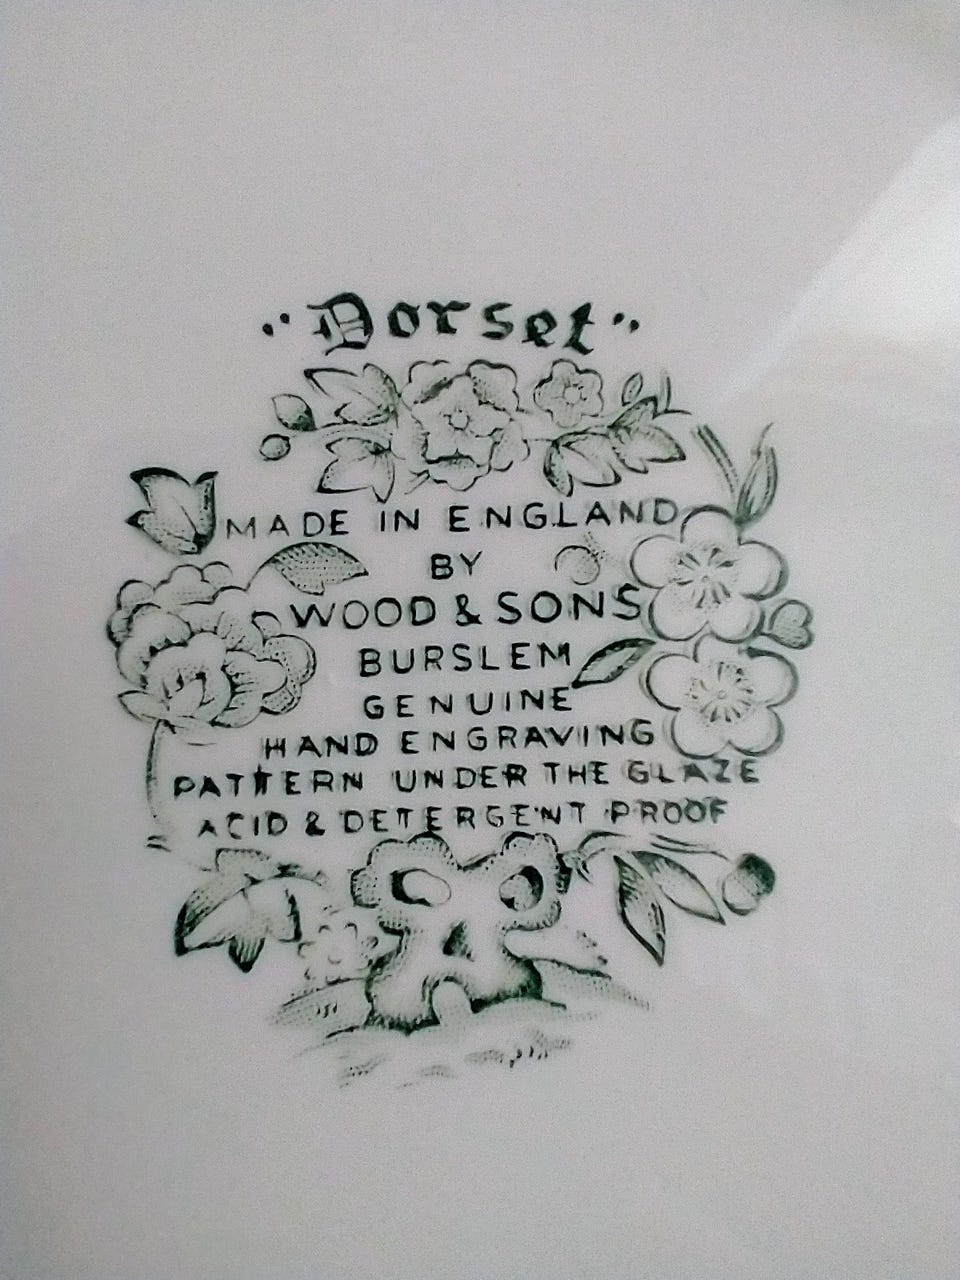 "Dorset"
MADE IN ENGLAND
BY
WOOD & SONS
BURSLEM
GENUINE
HAND ENGRAVING
PATTERN UNDER THE GLAZE
ACID & DETERGENT PROOF